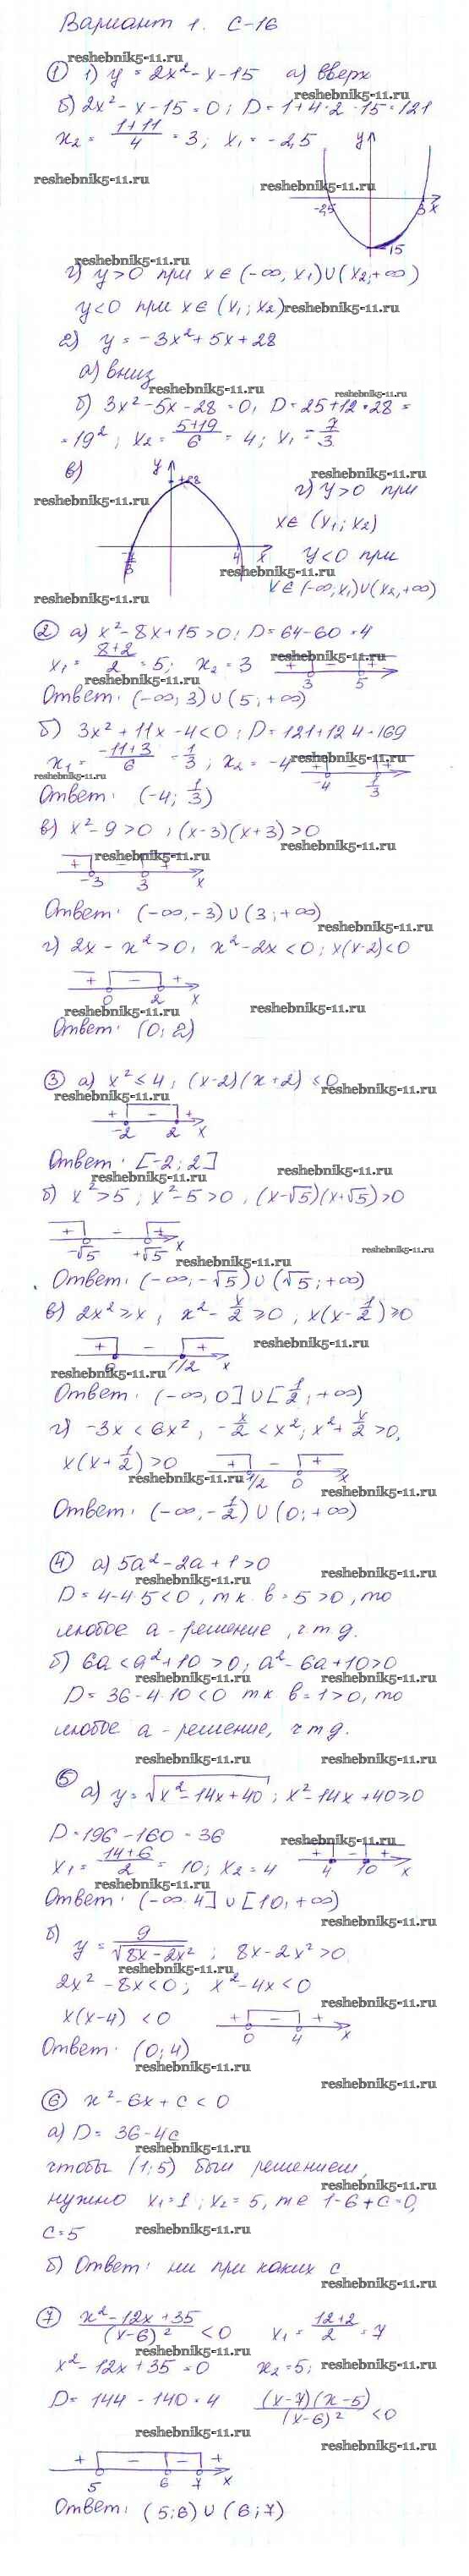 Вариант 1. С-16
reshebnik5-11.ru
① 1) y = 2x² - x - 15 а) вверх
reshebnik5-11.ru
б) 2x² - x - 15 = 0; D = 1 + 4·2·15 = 121
x₂ = (1+11)/4 = 3; x₁ = -2,5
y
reshebnik5-11.ru
reshebnik5-11.ru
-2,5 3 x
-15
reshebnik5-11.ru
г) y>0 при x∈(-∞, x₁)∪(x₂;+∞)
y<0 при x∈(x₁; x₂) reshebnik5-11.ru
2) y = -3x² + 5x + 28
а) вниз
reshebnik5-11.ru
reshebnik5-11.ru
б) 3x² - 5x - 28 = 0, D = 25 + 12·28 =
= 19²; x₂ = (5+19)/6 = 4; x₁ = -7/3
в) y +28
reshebnik5-11.ru
г) y>0 при
reshebnik5-11.ru
x∈ (x₁; x₂)
-7/3 4 x y<0 при
reshebnik5-11.ru
x∈(-∞;x₁)∪(x₂,+∞)
reshebnik5-11.ru
② а) x² - 8x + 15 > 0; D = 64 - 60 = 4
x₁ = (8+2)/2 = 5; x₂ = 3 + - + 3 5
reshebnik5-11.ru
reshebnik5-11.ru
Ответ: (-∞; 3) ∪ (5; +∞)
б) 3x² + 11x - 4 < 0; D = 121 + 12·4 = 169
x₁ = (-11+3)/6 = 1/3; x₂ = -4 + - + -4 1/3
reshebnik5-11.ru
reshebnik5-11.ru
Ответ: (-4; 1/3)
в) x² - 9 > 0; (x-3)(x+3) > 0
reshebnik5-11.ru
+ - + -3 3 x
reshebnik5-11.ru
Ответ: (-∞, -3) ∪ (3; +∞)
reshebnik5-11.ru
г) 2x - x² > 0; x² - 2x < 0; x(x-2) < 0
+ - + 0 2 x
reshebnik5-11.ru reshebnik5-11.ru
Ответ: (0; 2)
③ а) x² ≤ 4; (x-2)(x+2) ≤ 0
reshebnik5-11.ru
reshebnik5-11.ru
+ - + -2 2 x
Ответ: [-2; 2]
reshebnik5-11.ru
reshebnik5-11.ru
б) x² > 5; x² - 5 > 0, (x-√5)(x+√5) > 0
+ - + -√5 +√5 x
reshebnik5-11.ru
reshebnik5-11.ru
Ответ: (-∞, -√5) ∪ (√5; +∞)
в) 2x² ≥ x; x² - x/2 ≥ 0; x(x - 1/2) ≥ 0
reshebnik5-11.ru
+ - + 0 1/2 x
reshebnik5-11.ru
Ответ: (-∞, 0] ∪ [1/2; +∞)
г) -3x < 6x², -x/2 < x²; x² + x/2 > 0,
x(x + 1/2) > 0 + - + 1/2 0 x
reshebnik5-11.ru
reshebnik5-11.ru
Ответ: (-∞, -1/2) ∪ (0; +∞)
④ а) 5a² - 2a + 1 > 0
reshebnik5-11.ru
reshebnik5-11.ru
D = 4 - 4·5 < 0, т.к. в = 5 > 0, то
любое а - решение, ч.т.д.
б) 6a < a² + 10 > 0; a² - 6a + 10 > 0
reshebnik5-11.ru reshebnik5-11.ru
D = 36 - 4·10 < 0 т.к. в = 1 > 0, то
любое а - решение, ч.т.д.
reshebnik5-11.ru reshebnik5-11.ru
⑤ а) y = √(x² - 14x + 40); x² - 14x + 40 ≥ 0
D = 196 - 160 = 36
reshebnik5-11.ru
x₁ = (14+6)/2 = 10; x₂ = 4 + - + 4 10 x
reshebnik5-11.ru
Ответ: (-∞ 4] ∪ [10, +∞)
reshebnik5-11.ru
б) y = 9/√(8x - 2x²); 8x - 2x² > 0
reshebnik5-11.ru
2x² - 8x < 0; x² - 4x < 0
reshebnik5-11.ru
x(x-4) < 0 + - + 0 4 x
Ответ: (0; 4)
reshebnik5-11.ru
reshebnik5-11.ru
⑥ x² - 6x + c < 0
а) D = 36 - 4c
reshebnik5-11.ru
чтобы (1;5) был решением,
reshebnik5-11.ru
нужно x₁ = 1; x₂ = 5, т.е 1 - 6 + c = 0,
c = 5 reshebnik5-11.ru
б) Ответ: ни при каких c
reshebnik5-11.ru
⑦ (x² - 12x + 35)/(x-6)² < 0 x₁ = (12+2)/2 = 7
reshebnik5-11.ru
x² - 12x + 35 = 0 x₂ = 5; reshebnik5-11.ru
D = 144 - 140 = 4 (x-7)(x-5)/(x-6)² < 0
reshebnik5-11.ru
reshebnik5-11.ru
+ - - + 5 6 7 x
Ответ: (5;6) ∪ (6;7)